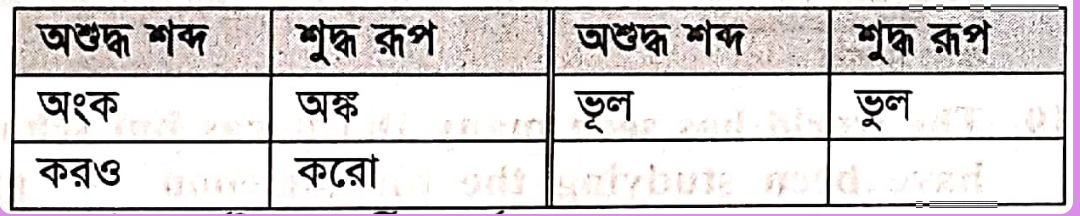 অশুদ্ধ শব্দ শুদ্ধ রূপ অশুদ্ধ শব্দ শুদ্ধ রূপ
অংক অঙ্ক ভূল ভুল
করও করো